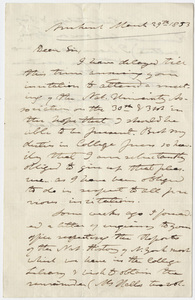 Amherst March 29th 1853
Dear Sir,
I have delayed till
this time answering your
invitation to attend a meet-
ing of the Nat. University As-
sociation on the 30th & 31st in
the hope that I should be
able to be present. But my
duties in College press so hea-
vily that I am reluctantly
obliged to forego that pleas-
ure as I have been obliged
to do in respect to all pre-
vious invitations.
Some weeks ago I
a letter inquiring to your
office respecting the Reports
of the Nat. History of New York
which we have in the College
Library & wish to obtain the
remainder (Mr